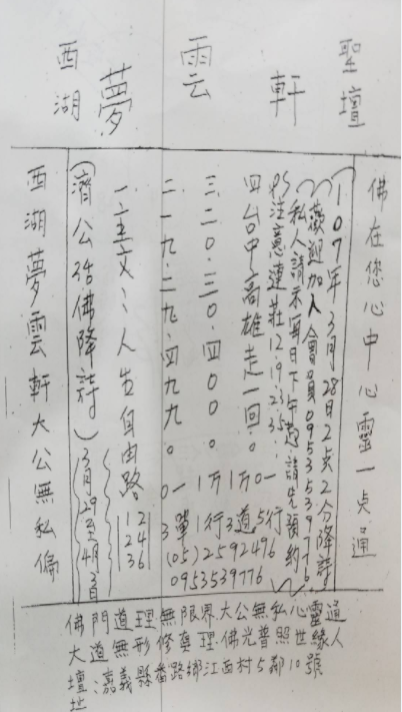 聖壇
軒
雲
夢
西湖
佛在您心中心靈一点通
107年3月28日2点2分降詩
歡迎加入會員0953539776
私人請示每日下午起請先預約
PS注意連莊12.19.23.35.
四台中高雄走一回:0 1万1道5行
三二0.三0.四000.0 1万1行3
二一九.二九.四九九.0 一單
(05)2592496
0953539776
一主文:人生自由路
12
24
36
(濟公活佛降詩)(3月29至4月3日)
西湖夢雲軒大公無私偏
佛門道理無限界.大公無私心靈通
大道無形修真理.佛光普照世緣人
壇址:嘉義縣番路鄉江西村5鄰10號